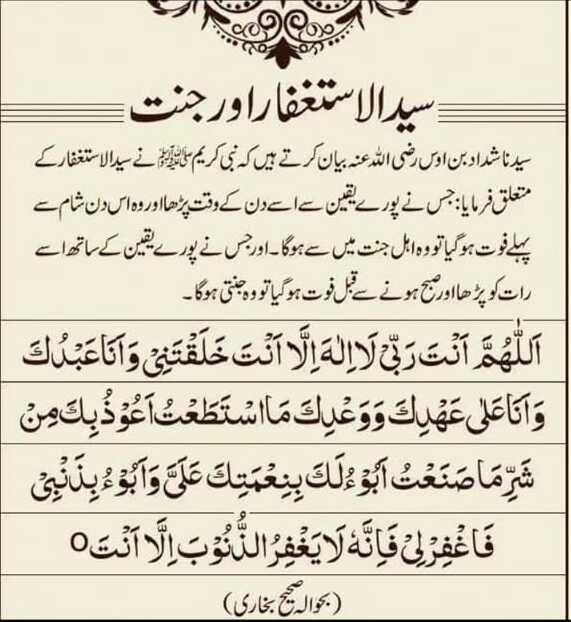 سید الاستغفار اور جنت
سیدنا شداد بن اوس رضی اللہ عنہ بیان کرتے ہیں کہ نبی کریم ﷺ نے سید الاستغفار کے
متعلق فرمایا: جس نے پورے یقین سے اسے دن کے وقت پڑھا اور وہ اس دن شام سے
پہلے فوت ہوگیا تو وہ اہل جنت میں سے ہوگا۔ اور جس نے پورے یقین کے ساتھ اسے
رات کو پڑھا اور صبح ہونے سے قبل فوت ہوگیا تو وہ جنتی ہوگا۔
اَللّٰهُمَّ اَنْتَ رَبِّیْ لَا اِلٰهَ اِلَّا اَنْتَ خَلَقْتَنِیْ وَاَنَا عَبْدُكَ
وَاَنَا عَلٰی عَهْدِكَ وَوَعْدِكَ مَا اسْتَطَعْتُ اَعُوْذُ بِكَ مِنْ
شَرِّ مَا صَنَعْتُ اَبُوْءُ لَكَ بِنِعْمَتِكَ عَلَیَّ وَاَبُوْءُ بِذَنْبِیْ
فَاغْفِرْ لِیْ فَاِنَّهٗ لَا یَغْفِرُ الذُّنُوْبَ اِلَّا اَنْتَ ○
(بحوالہ صحیح بخاری)